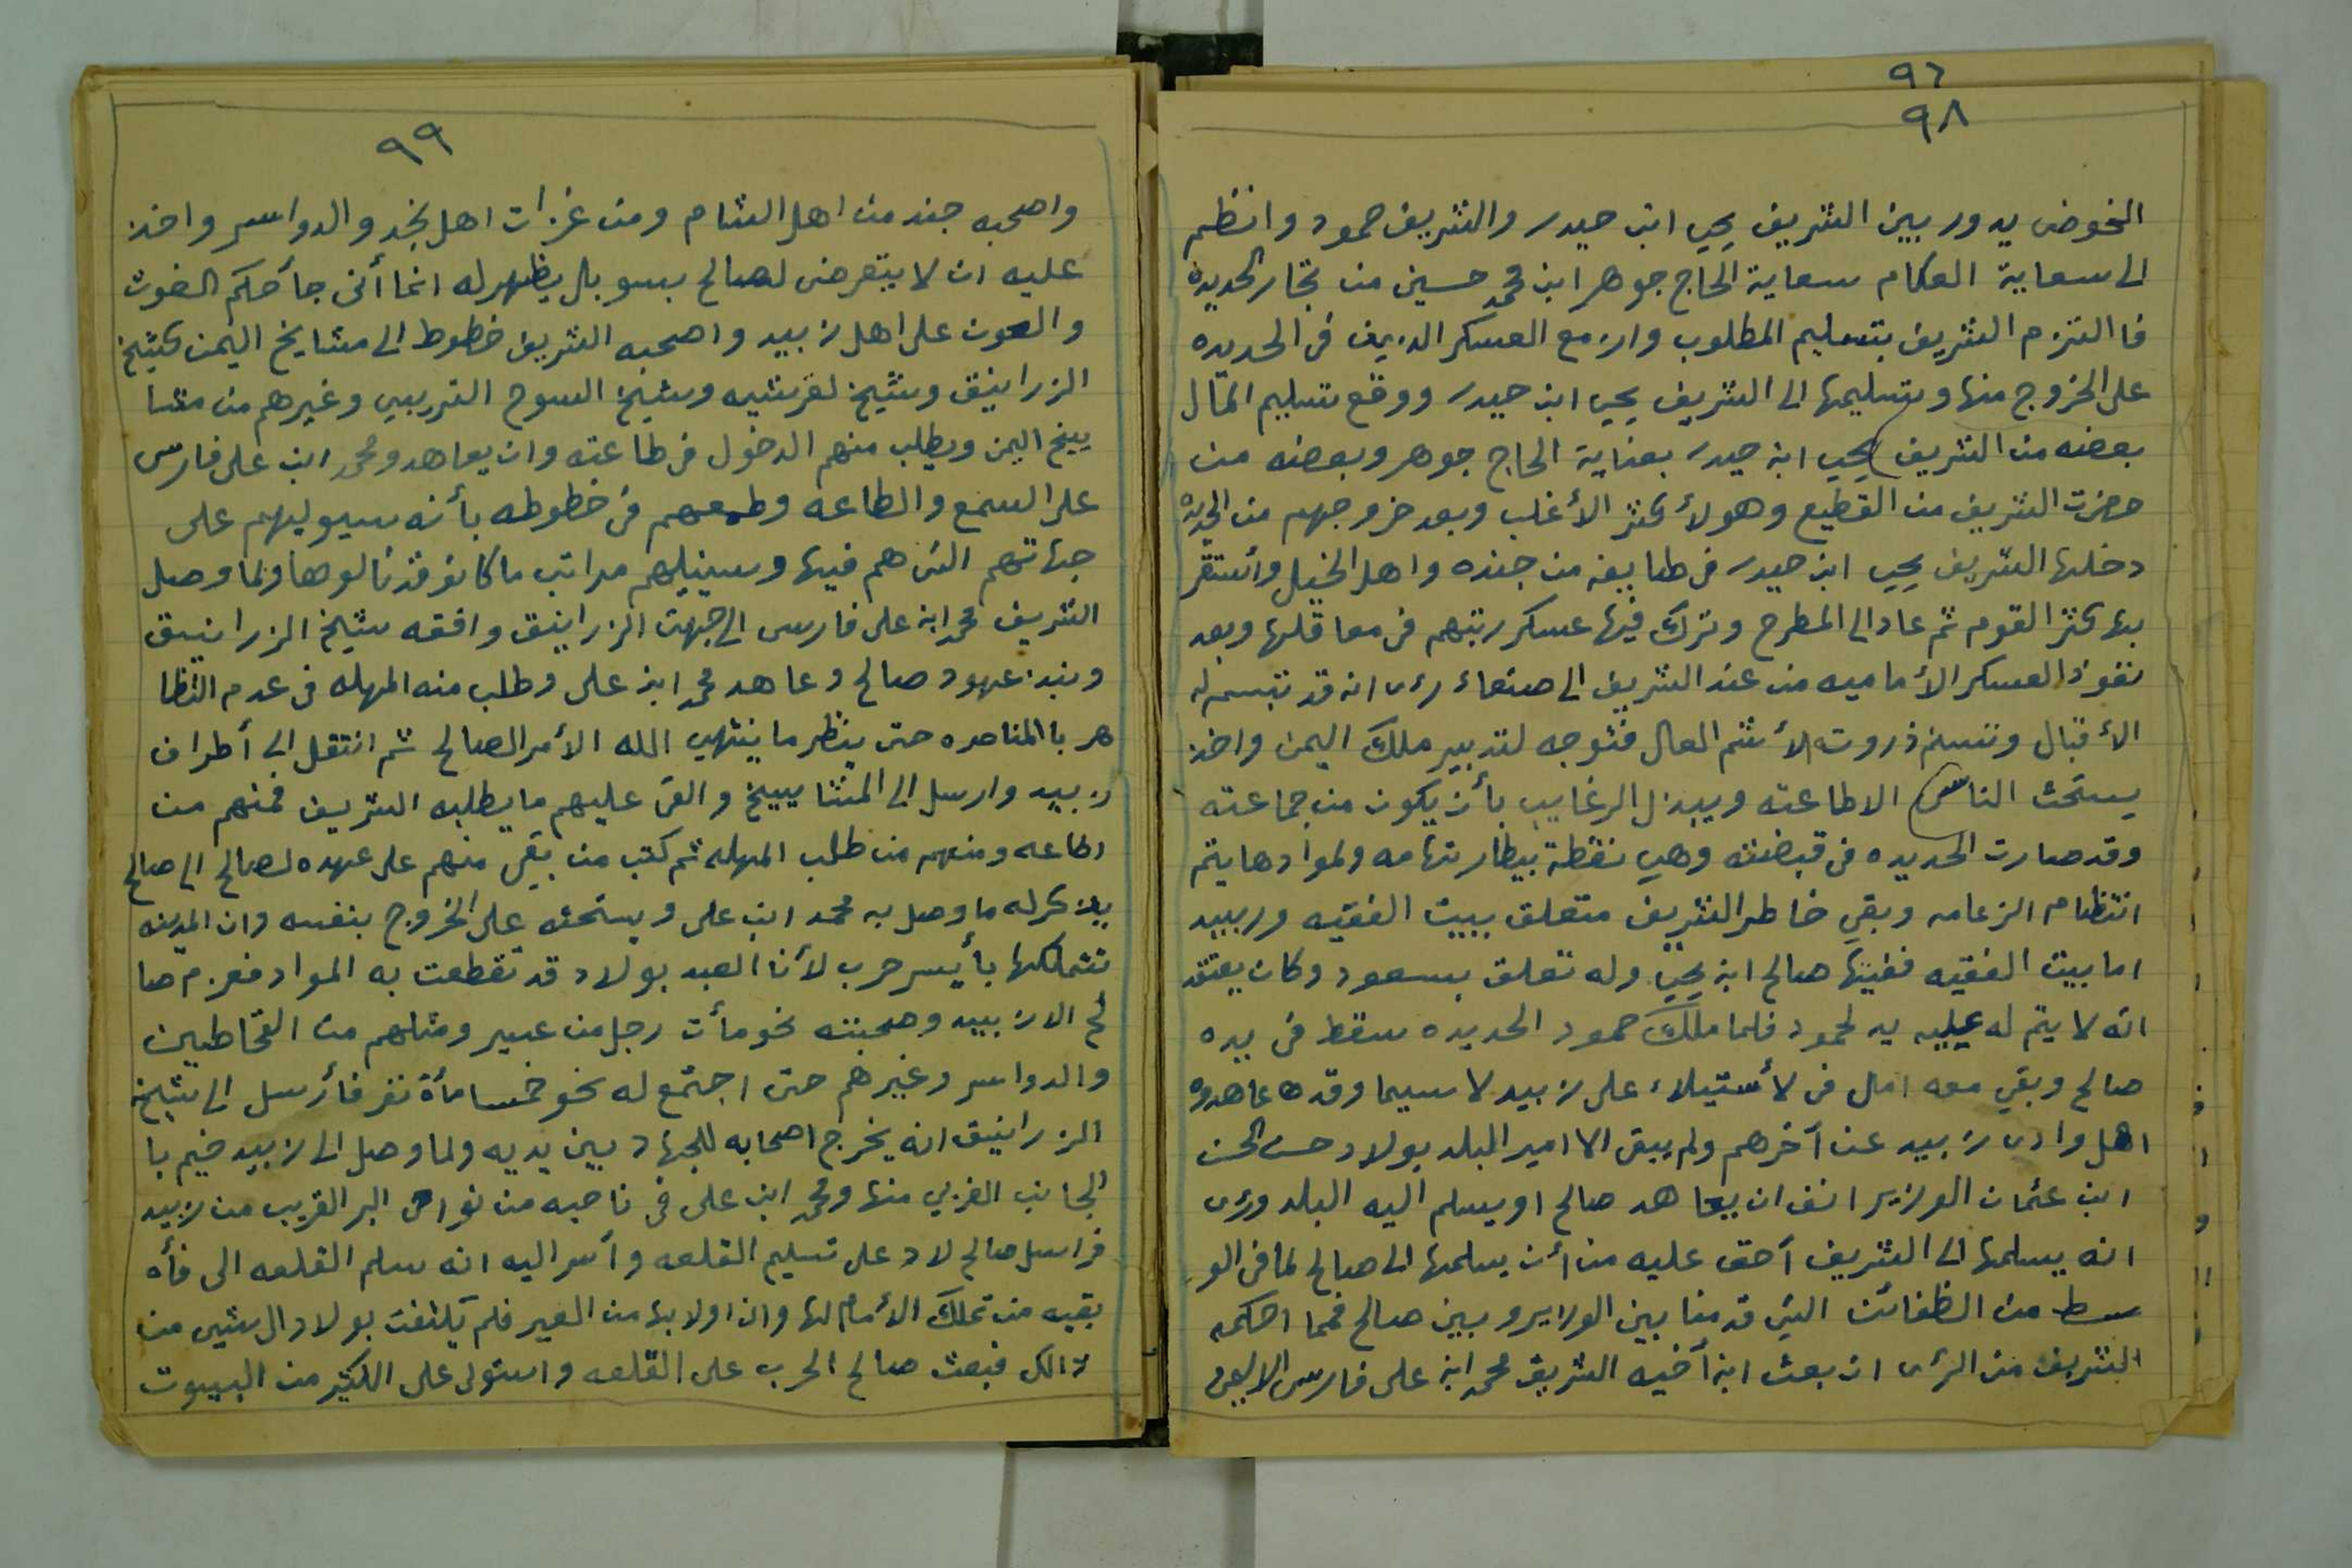 ٩٦
٩٨
الخوض يدور بين الشريف يحيى ابن حيدر والشريف حمود وانظم
الى سعاية العكام سعاية الحاج جوهر ابن محمد حسين من تجار الحديده
فا التزم الشريف بتسليم المطلوب وازمع العسكر الذين في الحديده
على الخروج منها وتسليمها الى الشريف يحيى ابن حيدر ووقع تسليم المال
بعضه من الشريف يحيى ابن حيدر بعناية الحاج جوهر وبعضه من
حضرت الشريف من القطيع وهولأ كثر الأغلب وبعد خروجهم من الحديده
دخلها الشريف يحيى ابن حيدر في طايفه من جنده واهل الخيل وأستقر
بها كثر القوم ثم عاد الى المطرح وترك فيها عسكر رتبهم في معاقلها وبعد
نفوذ العسكر الأماميه من عند الشريف الى صنعاء رءى انه قد تبسم له
الأقبال وتسنم ذروت الأشم العال فتوجه لتدبير ملك اليمن واخذ
يستحث الناس الاطاعته ويبذل الرغايب بأن يكون من جماعته
وقد صارت الحديده في قبضته وهي نقطة بيطار تهامه ولموادها يتم
انتظام الزعامه وبقي خاطر الشريف متعلق ببيت الفقيه وزبيد
اما بيت الفقيه ففيها صالح ابن يحيى وله تعلق بسعود وكان يعتقد
انه لا يتم له عليه يد لحمود فلما ملك حمود الحديده سقط في يده
صالح وبقي معه امل في لأستيلاء على زبيد لا سيما وقد عاهدوه
اهل وادى زبيد عن آخرهم ولم يبق الا امير البلد بولاد حسن الحسن
ابن عثمان الوزير انف ان يعاهد صالح او يسلم اليه البلد ورءى
انه يسلمها الى الشريف آحق عليه من أن يسلمها الى صالح لما في الو
سط من الظغائن التي قدمنا بين الوزير وبين صالح فمما احكمه
الشريف من الرءى ان بعث ابن أخيه الشريف محمد ابن على فارس الى اليمن
٩٩
واصحبه جند من اهل الشام ومن غزات اهل نجد والدواسر واخذ
عليه ان لا يتعرض لصالح بسو بل يظهر له انما أنى جأكم الغوث
والعون على اهل زبيد واصحبه الشريف خطوط الى مشايخ اليمن كشيخ
الزرانيق وشيخ لقرشيه وشيخ السوح التريبي وغيرهم من مشا
ييخ اليمن ويطلب منهم الدخول في طاعته وان يعاهدو محمد ابن على فارس
على السمع والطاعه وطمعهم في خطوطه بأنه سيوليهم على
جهاتهم التى هم فيها وسينيلهم مراتب ما كانو قد نالوها ولما وصل
الشريف محمد ابن على فارس الى جهت الزرانيق وافقه شيخ الزرانيق
ونبذ عهود صالح وعاهد محمد ابن على وطلب منه المهله في عدم التظا
هر با المناصره حتى ينظر ما ينتهي الله الأمر الصالح ثم انتقل الى أطراف
زبيد وارسل الى المشاييخ والقى عليهم ما يطلبه الشريف فمنهم من
اطاعه ومنهم من طلب المهله ثم كتب من بقي منهم على عهده لصالح الى صالح
يذكر له ما وصل به محمد ابن على ويستحثه على الخروج بنفسه وان المدينه
تتملكها بأيسر حرب لأن العبد بولاد قد تقطعت به المواد فعزم صا
لح الا زبيد وصحبته نحو مأت رجل من عسير ومثلهم من القحاطين
والدواسر وغيرهم حتى اجتمع له نحو خمسا مأة نفر فأرسل الى شيخ
الزرانيق انه يخرج اصحابه للجهاد بين يديه ولما وصل الى زبيد خيم با
الجانب الغربي منها ومحمد ابن على في ناحيه من نواحى البر القريب من زبيد
فراسل صالح لاد على تسليم القلعه وأسر اليه انه سلم القلعه الى فأه
بقيه من تملك الأمام لها وان اولا بها من الغير فلم يلتفت بولاد ال شيى من
ذالك فبعث صالح الحرب على القلعه واستولى على الكثير من البيوت